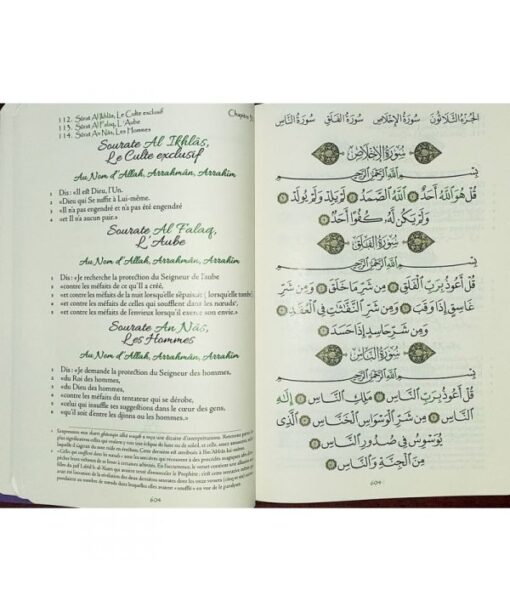 112. Sûrat Al Ikhlâs, Le Culte exclusif
113. Sûrat Al Falaq, L'Aube
114. Sûrat An Nâs, Les Hommes
Chapitre
Sourate Al Ikhlâs,
Le Culte exclusif
Au Nom d'Allah, Arrahmân, Arrahîm
1 Dis : «Il est Dieu, l'Un.
2 «Dieu qui Se suffit à Lui-même.
3 «Il n'a pas engendré et n'a pas été engendré
4 «et Il n'a aucun pair.»
Sourate Al Falaq,
L'Aube
Au Nom d'Allah, Arrahmân, Arrahîm
1 Dis : «Je recherche la protection du Seigneur de l'aube
2 «contre les méfaits de ce qu'Il a créé,
3 «et contre les méfaits de la nuit lorsqu'elle s'épaissit (lorsqu'elle tombe)
4 «et contre les méfaits de celles qui soufflent dans les nœuds,
5 «et contre les méfaits de l'envieux lorsqu'il exerce son envie.»
Sourate An Nâs,
Les Hommes
Au Nom d'Allah, Arrahmân, Arrahîm
1 Dis : «Je demande la protection du Seigneur des hommes,
2 «du Roi des hommes,
3 «du Dieu des hommes,
4 «contre les méfaits du tentateur qui se dérobe,
5 «celui qui insuffle ses suggestions dans le cœur des gens,
6 «qu'il soit d'entre les djinns ou les hommes.»
604
الجزء الثلاثون سورة الإخلاص سورة الفلق سورة الناس
سورة الإخلاص
بسم الله الرحمن الرحيم
قُلْ هُوَ ٱللَّهُ أَحَدٌ ١ ٱللَّهُ ٱلصَّمَدُ ٢ لَمْ يَلِدْ وَلَمْ يُولَدْ ٣
وَلَمْ يَكُن لَّهُۥ كُفُوًا أَحَدٌۢ ٤
سورة الفلق
بسم الله الرحمن الرحيم
قُلْ أَعُوذُ بِرَبِّ ٱلْفَلَقِ ١ مِن شَرِّ مَا خَلَقَ ٢ وَمِن شَرِّ
غَاسِقٍ إِذَا وَقَبَ ٣ وَمِن شَرِّ ٱلنَّفَّٰثَٰتِ فِى ٱلْعُقَدِ ٤
وَمِن شَرِّ حَاسِدٍ إِذَا حَسَدَ ٥
سورة الناس
بسم الله الرحمن الرحيم
قُلْ أَعُوذُ بِرَبِّ ٱلنَّاسِ ١ مَلِكِ ٱلنَّاسِ ٢ إِلَٰهِ
ٱلنَّاسِ ٣ مِن شَرِّ ٱلْوَسْوَاسِ ٱلْخَنَّاسِ ٤ ٱلَّذِى
يُوَسْوِسُ فِى صُدُورِ ٱلنَّاسِ ٥
مِنَ ٱلْجِنَّةِ وَٱلنَّاسِ ٦
٦٠٤